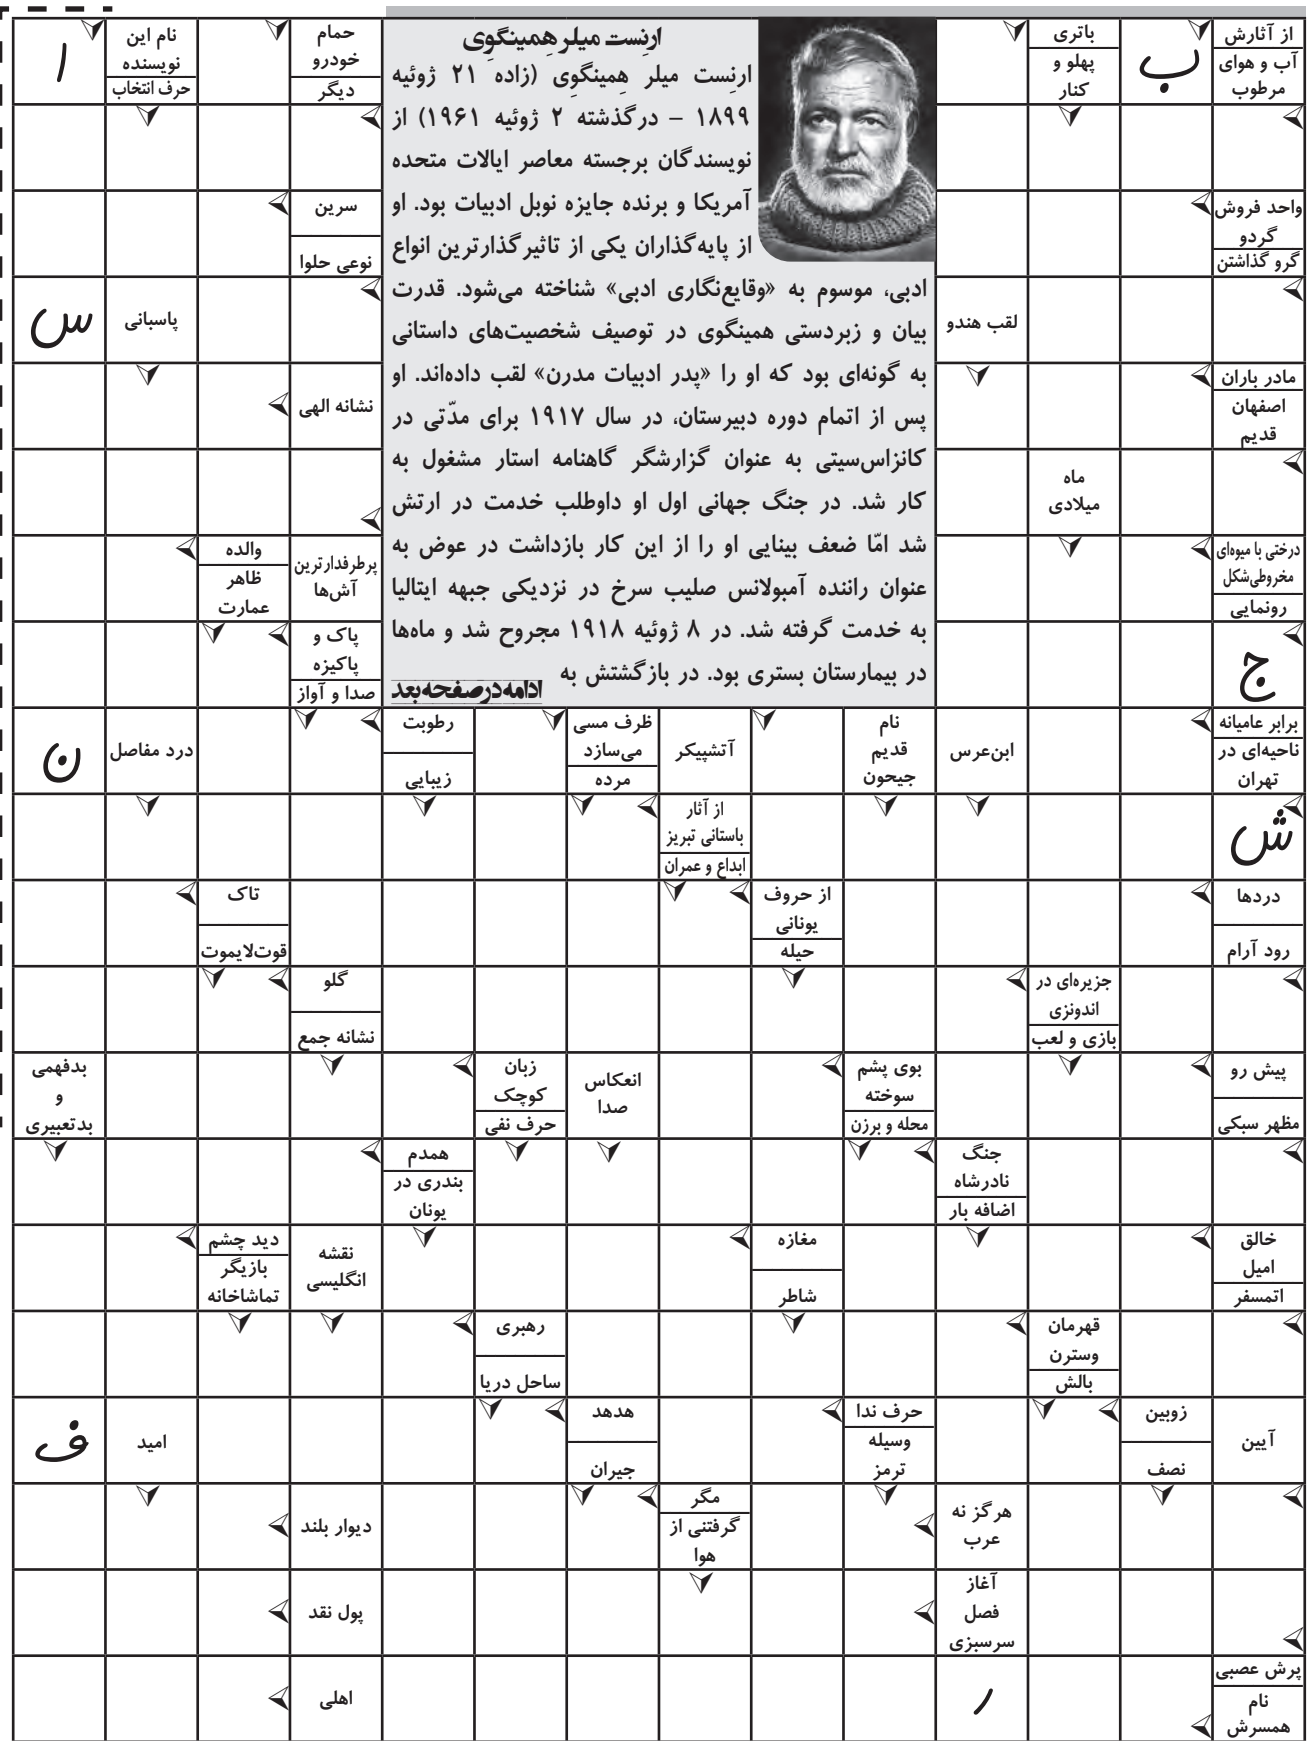 از آثارش
آب و هوای
مرطوب
ب
باتری
پهلو و
کنار
ارنِست میلر هِمینگوِی
ارنِست میلر هِمینگوِی (زاده ۲۱ ژوئیه
۱۸۹۹ – درگذشته ۲ ژوئیه ۱۹۶۱) از
نویسندگان برجسته معاصر ایالات متحده
آمریکا و برنده جایزه نوبل ادبیات بود. او
از پایه‌گذاران یکی از تاثیرگذارترین انواع
ادبی، موسوم به «وقایع‌نگاری ادبی» شناخته می‌شود. قدرت
بیان و زبردستی همینگوی در توصیف شخصیت‌های داستانی
به گونه‌ای بود که او را «پدر ادبیات مدرن» لقب داده‌اند. او
پس از اتمام دوره دبیرستان، در سال ۱۹۱۷ برای مدّتی در
کانزاس‌سیتی به عنوان گزارشگر گاهنامه استار مشغول به
کار شد. در جنگ جهانی اول او داوطلب خدمت در ارتش
شد امّا ضعف بینایی او را از این کار بازداشت در عوض به
عنوان راننده آمبولانس صلیب سرخ در نزدیکی جبهه ایتالیا
به خدمت گرفته شد. در ۸ ژوئیه ۱۹۱۸ مجروح شد و ماه‌ها
در بیمارستان بستری بود. در بازگشتش به
ادامه‌درصفحه‌بعد
حمام
خودرو
دیگر
نام این
نویسنده
حرف انتخاب
ا
واحد فروش
گردو
گرو گذاشتن
سرین
نوعی حلوا
لقب هندو
پاسبانی
س
مادر باران
اصفهان
قدیم
نشانه الهی
ماه
میلادی
درختی با میوه‌ای
مخروطی‌شکل
رونمایی
پرطرفدارترین
آش‌ها
والده
ظاهر
عمارت
ج
پاک و
پاکیزه
صدا و آواز
برابر عامیانه
ناحیه‌ای در
تهران
ابن‌عرس
نام
قدیم
جیحون
آتشپیکر
ظرف مسی
می‌سازد
مرده
رطوبت
زیبایی
درد مفاصل
ن
ش
از آثار
باستانی تبریز
ابداع و عمران
دردها
رود آرام
از حروف
یونانی
حیله
تاک
قوت‌لایموت
جزیره‌ای در
اندونزی
بازی و لعب
گلو
نشانه جمع
پیش رو
مظهر سبکی
بوی پشم
سوخته
محله و برزن
انعکاس
صدا
زبان
کوچک
حرف نفی
بدفهمی
و
بدتعبیری
جنگ
نادرشاه
اضافه بار
همدم
بندری در
یونان
خالق
امیل
اتمسفر
مغازه
شاطر
نقشه
انگلیسی
دید چشم
بازیگر
تماشاخانه
قهرمان
وسترن
بالش
رهبری
ساحل دریا
آیین
زوبین
نصف
حرف ندا
وسیله
ترمز
هدهد
جیران
امید
ف
هرگز نه
عرب
مگر
گرفتنی از
هوا
دیوار بلند
آغاز
فصل
سرسبزی
پول نقد
پرش عصبی
نام
همسرش
ر
اهلی